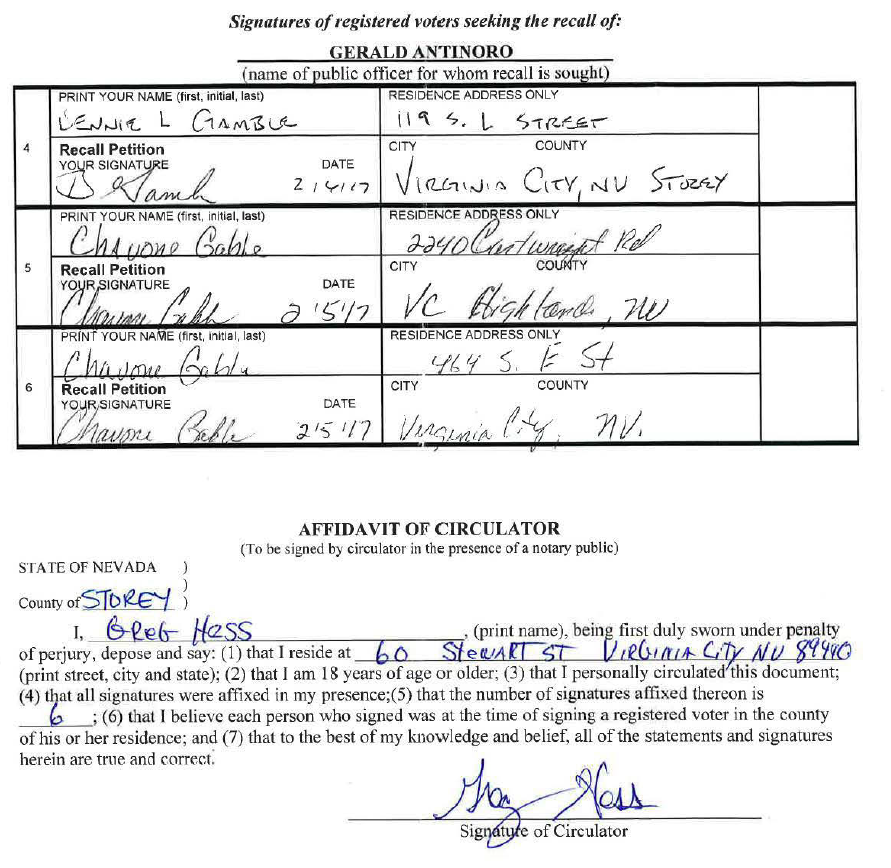 Signatures of registered voters seeking the recall of:
GERALD ANTINORO
(name of public officer for whom recall is sought)
PRINT YOUR NAME (first, initial, last) RESIDENCE ADDRESS ONLY
L GAMBLE 119 S. L STREET
4 Recall Petition CITY COUNTY
YOUR SIGNATURE DATE
2/4/17 VIRGINIA CITY, NV STOREY
PRINT YOUR NAME (first, initial, last) RESIDENCE ADDRESS ONLY
Chavone Gable 2240 Cartwright Rd
5 Recall Petition CITY COUNTY
YOUR SIGNATURE DATE
Chavone Gable 2/5/17 VC Highlands, NV
PRINT YOUR NAME (first, initial, last) RESIDENCE ADDRESS ONLY
Chavone Gable 464 S. E St
6 Recall Petition CITY COUNTY
YOUR SIGNATURE DATE
Chavone Gable 2/5/17 Verginia City, NV.
AFFIDAVIT OF CIRCULATOR
(To be signed by circulator in the presence of a notary public)
STATE OF NEVADA )
)
County of STOREY )
I, GREG HESS, (print name), being first duly sworn under penalty
of perjury, depose and say: (1) that I reside at 60 STEWART ST VIRGINIA CITY NV 89440
(print street, city and state); (2) that I am 18 years of age or older; (3) that I personally circulated this document;
(4) that all signatures were affixed in my presence;(5) that the number of signatures affixed thereon is
6 ; (6) that I believe each person who signed was at the time of signing a registered voter in the county
of his or her residence; and (7) that to the best of my knowledge and belief, all of the statements and signatures
herein are true and correct.
Greg Hess
Signature of Circulator